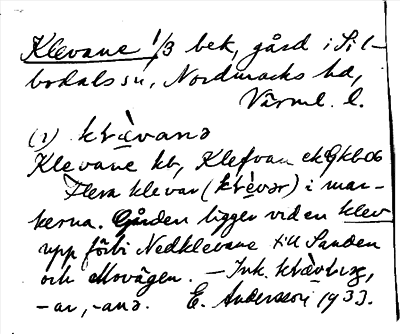 Klevane 1/3 bek, gård i Sil-
bodals sn, Nordmarks hd,
Värml. l.
(1) klævanə
Klevane kb, Klefvan ekG kb 06
Flera klevar (klevər) i mar-
kerna. Gården ligger vid en klev
upp förbi Nedklevane till Sanden
och Movägen. – Ink.
-ar, -anə. E. Andersson 1933.